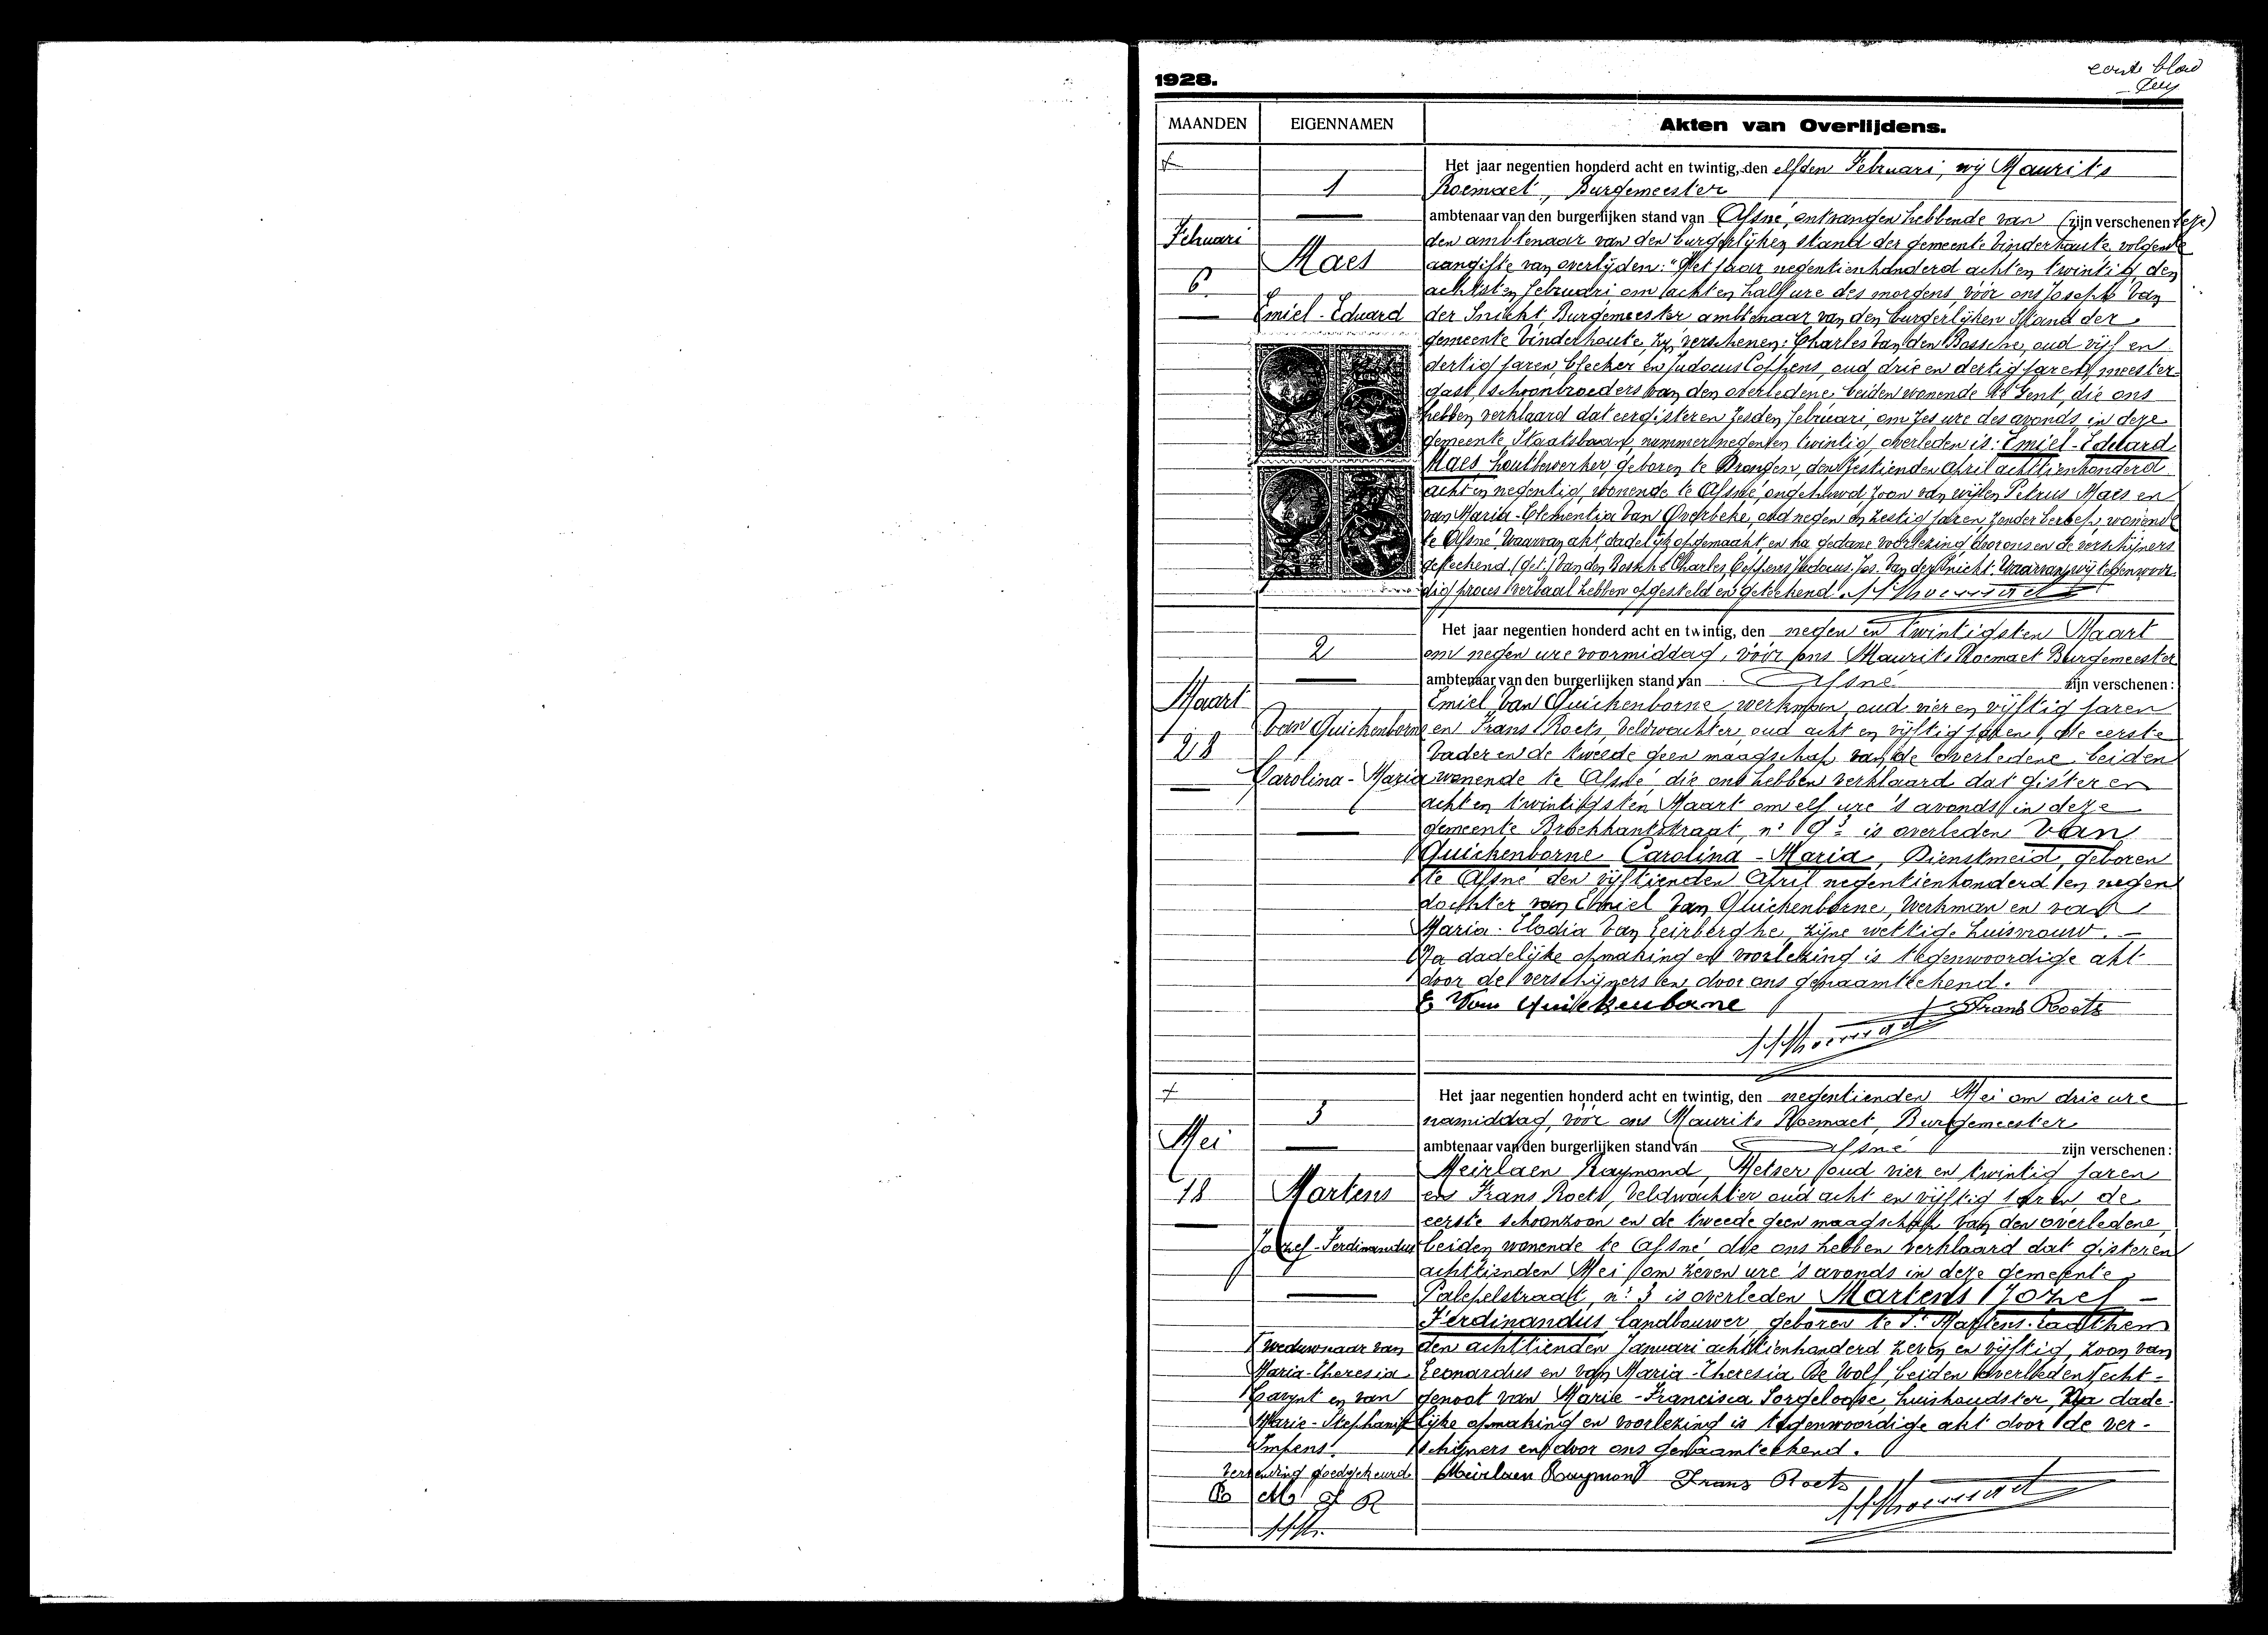 1928.
eerste blad
MAANDEN EIGENNAMEN Akten van Overlijdens.
1
Februari
6
Maes
Emiel-Eduard
Het jaar negentien honderd acht en twintig, den elfden Februari, wij Maurits
Roemaet, Burgemeester
ambtenaar van den burgerlijken stand van Afsné, ontvangen hebbende van (zijn verschenen
den ambtenaar van den burgerlijken stand der gemeente Vinderhoute, volgende
aangifte van overlijden: "Het jaar negentienhonderd acht en twintig, den
achtsten februari om acht en half ure des morgens, vóór ons Joseph Van
der Snickt Burgemeester ambtenaar van den burgerlijken Stand der
gemeente Vinderhoute, zijn verschenen: Charles Van den Bossche, oud vijf en
dertig jaren, bleeker en Judocus Coppens, oud drie en dertig jaren, meester-
gast, schoonbroeders van den overledene, beiden wonende te Gent, die ons
hebben verklaard dat eergisteren zesden februari, om zes ure des avonds, in deze
gemeente, Staatsbaan, nummer negen en twintig, overleden is: Emiel-Eduard
Maes houtbewerker, geboren te Drongen, den zestienden April achttienhonderd
acht en negentig, wonende te Afsné, ongehuwd, zoon van wijlen Petrus Maes en
van Maria-Clementia Van Overbeke, oud negen en zestig jaren, zonder beroep, wonende
te Afsné. Waarvan akt, dadelijk opgemaakt, en na gedane voorlezing door ons en de verschijners
geteekend. (get.) Van den Bossche Charles, Coppens Judocus, Jos. Van der Snickt. Waarvan wij tegenwoor-
dig proces verbaal hebben opgesteld en geteekend. M Roemaet
2
Maart
28
Van Quickenborne
Carolina-Maria
Het jaar negentien honderd acht en twintig, den negen en twintigsten Maart
om negen ure voormiddag, vóór ons Maurits Roemaet Burgemeester
ambtenaar van den burgerlijken stand van Afsné zijn verschenen:
Emiel Van Quickenborne, werkman, oud vier en vijftig jaren
en Frans Roets, Veldwachter, oud acht en vijftig jaren, de eerste
Vader en de tweede geen maagschap van de overledene, beiden
wonende te Afsné, die ons hebben verklaard dat gisteren
acht en twintigsten Maart om elf ure 's avonds in deze
gemeente Broekkantstraat, n: 9 is overleden Van
Quickenborne Carolina-Maria, Dienstmeid, geboren
te Afsné den vijftienden April negentienhonderd en negen
dochter van Emiel Van Quickenborne, Werkman en van
Maria-Elodia Van Leirberghe, zijne wettige huisvrouw. -
Na dadelijke opmaking en voorlezing is tegenwoordige akt
door de verschijners en door ons genaamteekend.
E Van Quickenborne Frans Roets
M Roemaet
3
Mei
18
Martens
Jozef-Ferdinandus
Het jaar negentien honderd acht en twintig, den negentienden Mei om drie ure
namiddag, vóór ons Maurits Roemaet, Burgemeester
ambtenaar van den burgerlijken stand van Afsné zijn verschenen:
Meirlaen Raymond, Metser, oud vier en twintig jaren
en Frans Roets, Veldwachter oud acht en vijftig jaren, de
eerste schoonzoon en de tweede geen maagschap van den overledene,
beiden wonende te Afsné, die ons hebben verklaard dat gisteren
achttienden Mei om zeven ure 's avonds in deze gemeente,
Palepelstraat, n: 3 is overleden Martens Jozef-
Ferdinandus landbouwer, geboren te St. Martens-Laathem
den achttienden Januari achttienhonderd zeven en vijftig, zoon van
Leonardus en van Maria-Theresia De Wolf, beiden overleden, echt-
genoot van Marie-Francisca Sorgeloose, huishoudster, Na dade-
lijke opmaking en voorlezing is tegenwoordige akt door de ver-
schijners en door ons genaamteekend.
weduwnaar van
Maria-Theresia
en van
Marie-Stephanie
Impens.
Verzending goedgekeurd
M R
Meirlaen Raymond Frans Roets
M Roemaet